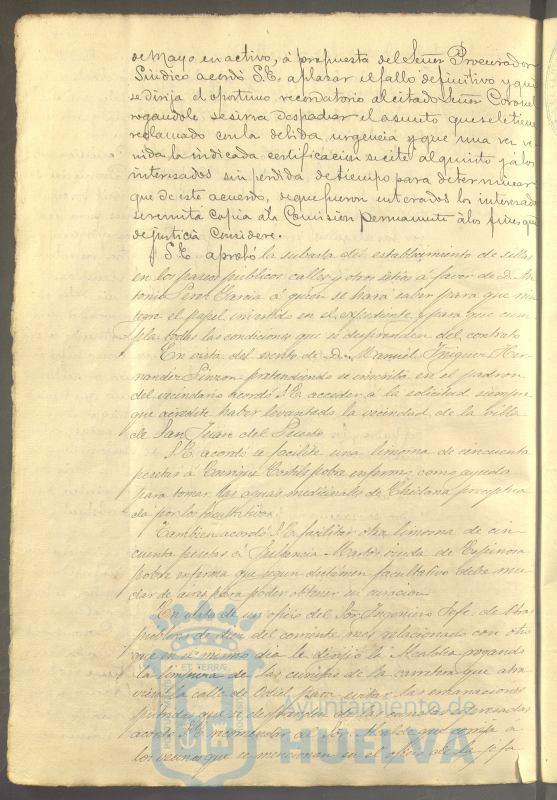 de Mayo en activo, á propuesta del Señor Procurador
Síndico acordó S.E. aplazar el fallo definitivo y que
se dirija el oportuno recordatorio al citado Señor Coronel
rogandole se sirva despachar el asunto que se le tiene
reclamado con la debida urgencia y que una vez ve-
nida la indicada certificacion se cite al quinto y á los
interesados sin perdida de tiempo para determinar
que de este acuerdo, de que fueron enterados los interesados
se remita copia á la Comisión permanente á los fines que
de justicia considere.
S.E. aprobó la subasta del establecimiento de sillas
en los paseos publicos calles y otros sitios á favor de D. An-
tonio Garcia á quien se hará saber para que
el papel invertido en el expediente y para que cum-
pla todas las condiciones que se desprenden del contrato
En vista del escrito de D. Manuel Iñiguez Her-
nandez Pinzon pretendiendo se inscriba en el padron
del vecindario acordó S.E. acceder á la solicitud siempre
que acredite haber levantado la vecindad de la villa
de San Juan del Puerto
S.E. acordó se facilite una limosna de cincuenta
pesetas á Enrique pobre enfermo como ayuda
para tomar las aguas medicinales de Chiclana prescriptas
por los facultativos.
Tambien acordó S.E. facilitar otra limosna de cin-
cuenta pesetas á Justancia viuda de Espinosa
pobre enferma que segun dictámen facultativo debe mu-
dar de aires para poder obtener su curacion
En vista de un oficio del Sor. Ingeniero Jefe de Obras
publicas de diez del corriente mes relacionado con otro
que en el mismo dia le dirijió la Alcaldia rogando
la limpieza de las cunetas de la carretera que atra-
viesa la calle de Odiel para evitar las emanaciones
putridas que se desprenden de las
acordó S.E. al Sor. Alcalde que á
los vecinos que se mencionan en el oficio de la Jefa-
Ayuntamiento de
HUELVA